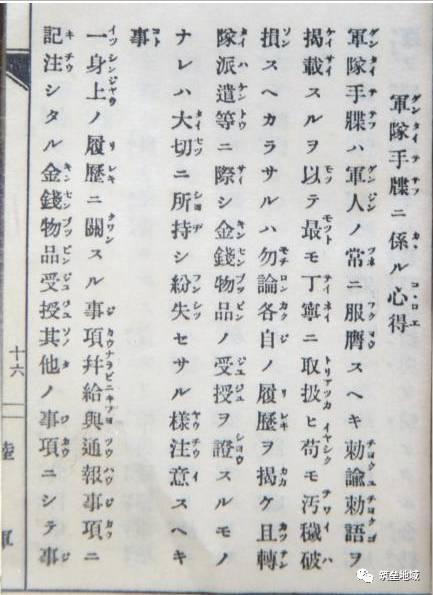 軍隊手牒ニ係ル心得
軍隊手牒ハ軍人ノ常ニ服膺スヘキ勅諭勅語ヲ
揭載スルヲ以テ最モ丁寧ニ取扱ヒ苟モ汚穢破
損スヘカラサルハ勿論各自ノ履歷ヲ揭ケ且轉
隊派遣等ニ際シ金錢物品ノ受授ヲ證スルモノ
ナレハ大切ニ所持シ紛失セサル樣注意スヘキ
事
一身上ノ履歷ニ關スル事項幷給與通報事項ニ
記注シタル金錢物品受授其他ノ事項ニシテ事
十六
陸軍
筑垒地域